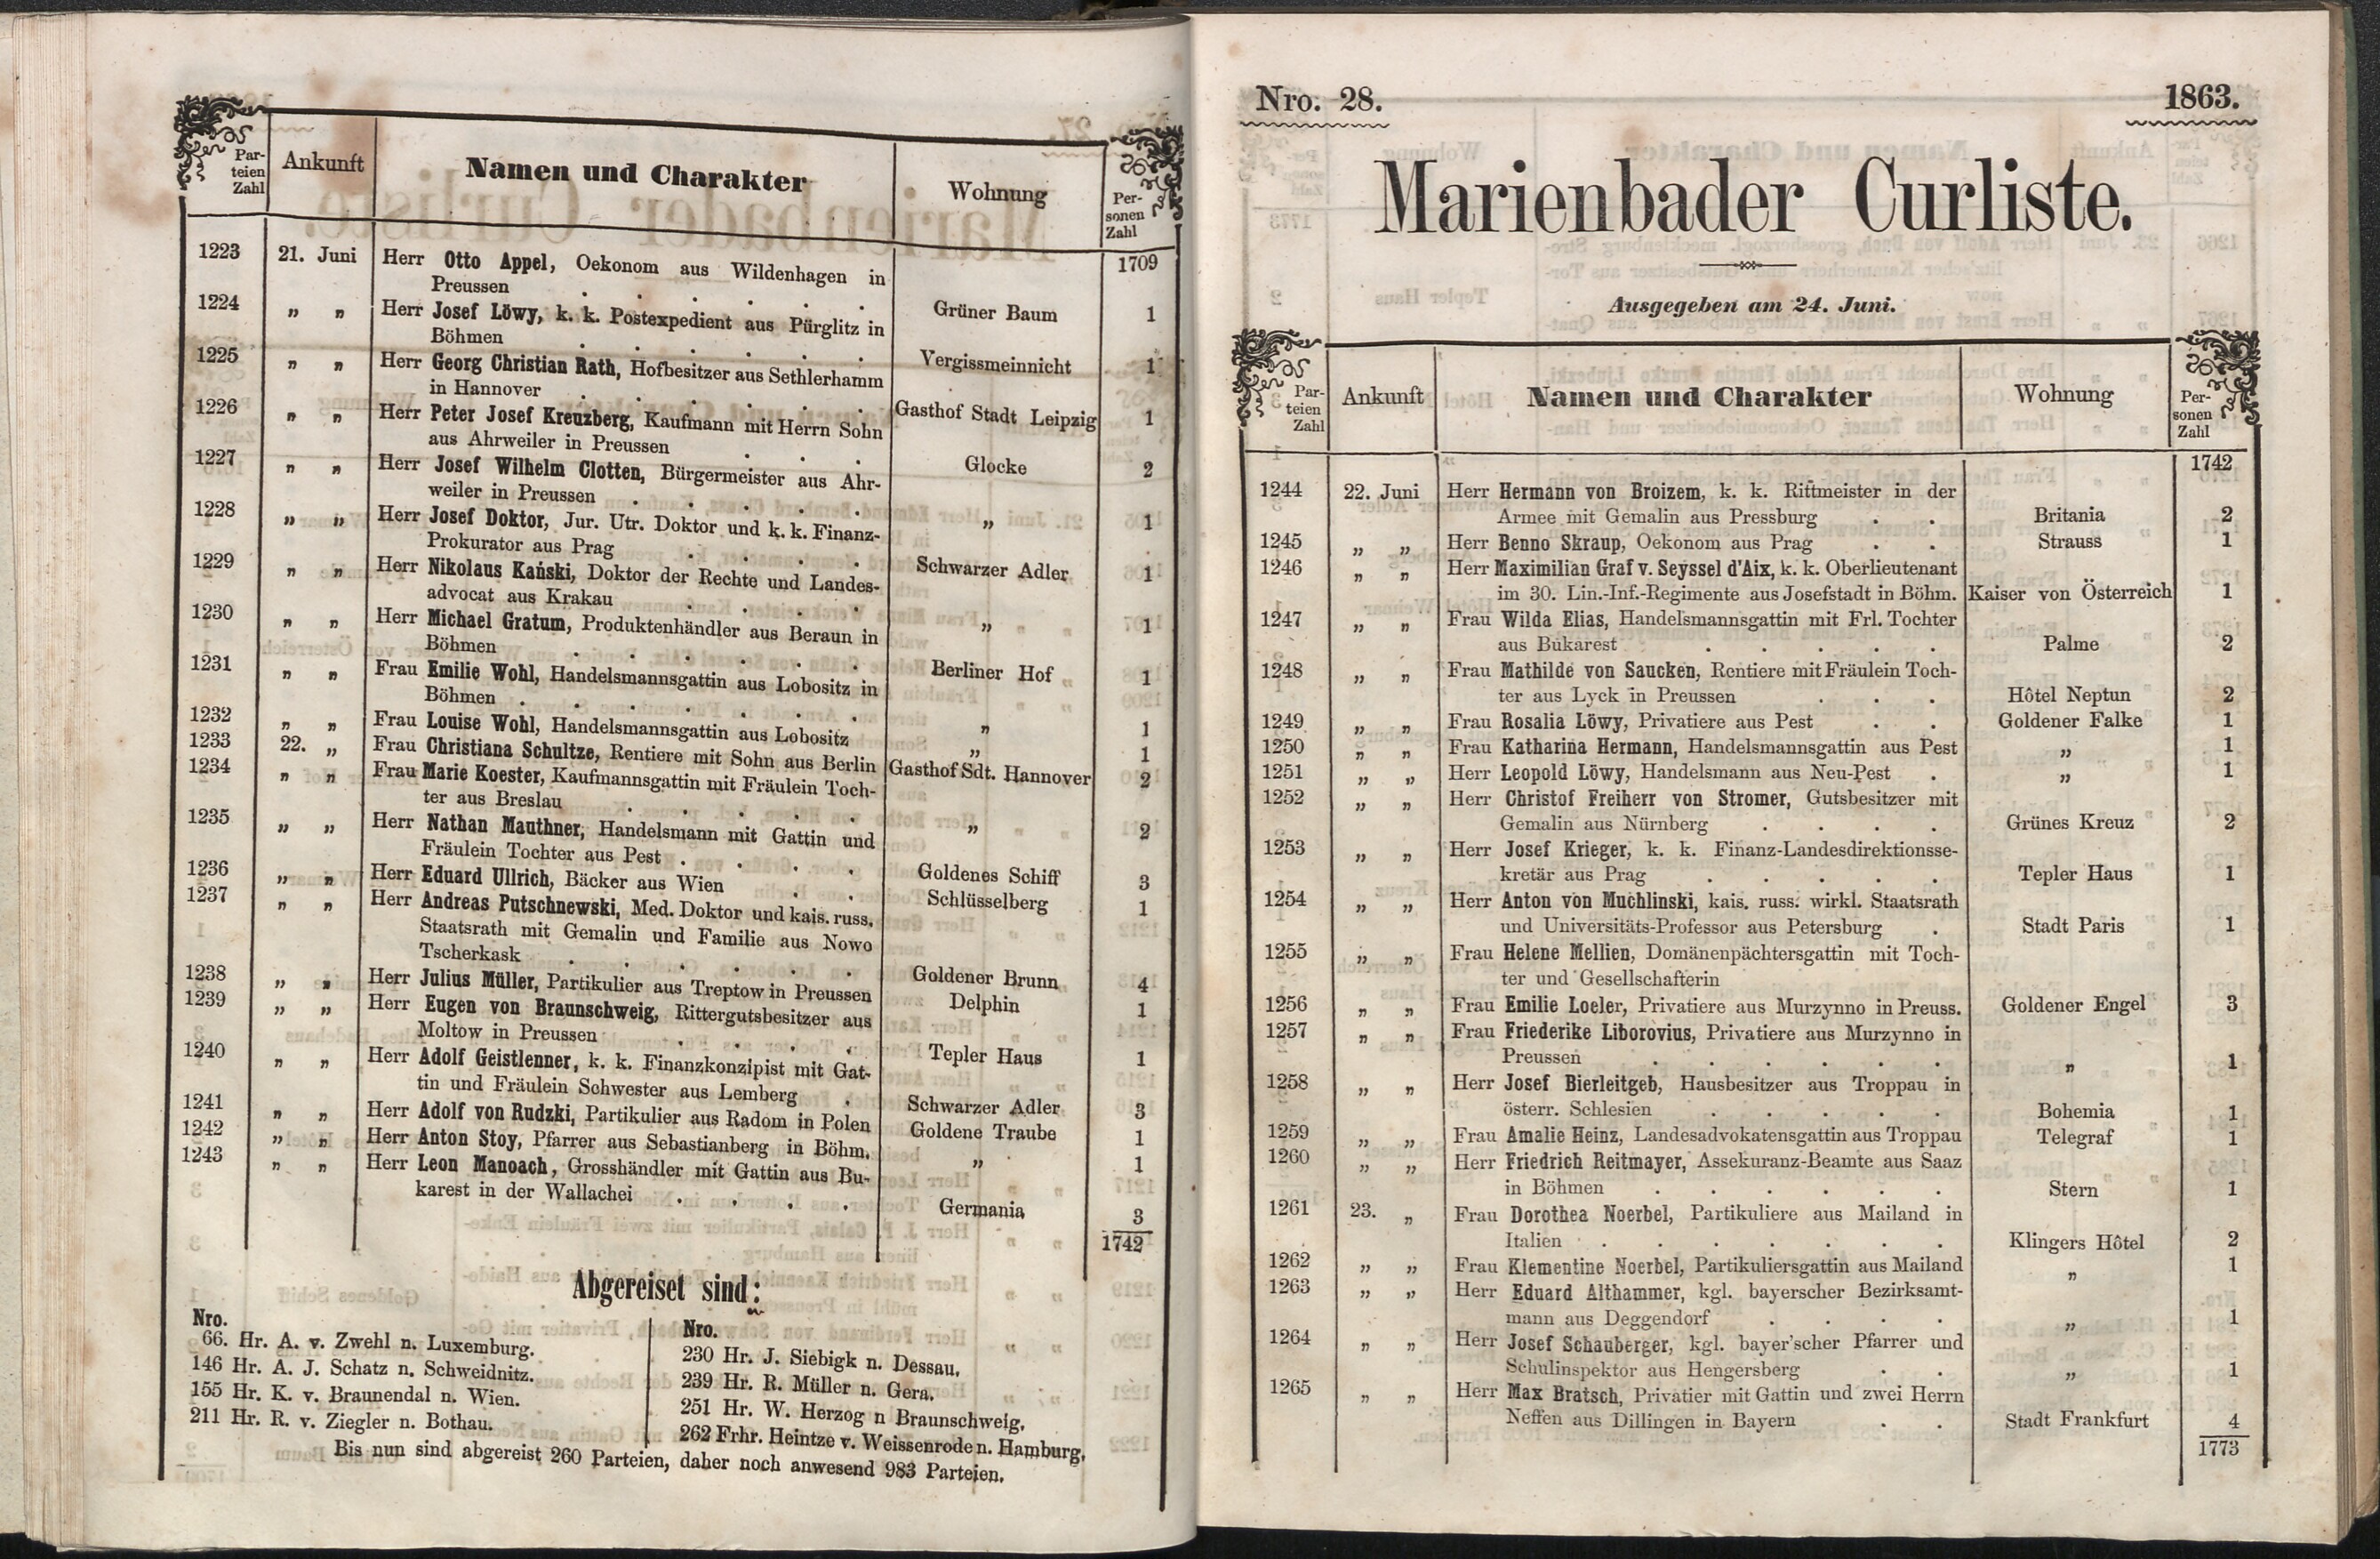 Par-
teien
Zahl
Ankunft
Namen und Charakter
Wohnung
Per-
sonen
Zahl
1709
1223 21. Juni Herr Otto Appel, Oekonom aus Wildenhagen in
Preussen . . . . . . Grüner Baum 1
1224 „ „ Herr Josef Löwy, k. k. Postexpedient aus Pürglitz in
Böhmen . . . . . . Vergissmeinnicht 1
1225 „ „ Herr Georg Christian Rath, Hofbesitzer aus Sethlerhamm
in Hannover . . . . . . Gasthof Stadt Leipzig 1
1226 „ „ Herr Peter Josef Kreuzberg, Kaufmann mit Herrn Sohn
aus Ahrweiler in Preussen . . . Glocke 2
1227 „ „ Herr Josef Wilhelm Clotten, Bürgermeister aus Ahr-
weiler in Preussen . . . . . „ 1
1228 „ „ Herr Josef Doktor, Jur. Utr. Doktor und k. k. Finanz-
Prokurator aus Prag . . . . Schwarzer Adler 1
1229 „ „ Herr Nikolaus Kański, Doktor der Rechte und Landes-
advocat aus Krakau . . . . „ 1
1230 „ „ Herr Michael Gratum, Produktenhändler aus Beraun in
Böhmen . . . . . . Berliner Hof 1
1231 „ „ Frau Emilie Wohl, Handelsmannsgattin aus Lobositz in
Böhmen . . . . . . „ 1
1232 „ „ Frau Louise Wohl, Handelsmannsgattin aus Lobositz „ 1
1233 22. „ Frau Christiana Schultze, Rentiere mit Sohn aus Berlin Gasthof Sdt. Hannover 2
1234 „ „ Frau Marie Koester, Kaufmannsgattin mit Fräulein Toch-
ter aus Breslau . . . . . „ 2
1235 „ „ Herr Nathan Mauthner, Handelsmann mit Gattin und
Fräulein Tochter aus Pest . . . . Goldenes Schiff 3
1236 „ „ Herr Eduard Ullrich, Bäcker aus Wien . . Schlüsselberg 1
1237 „ „ Herr Andreas Putschnewski, Med. Doktor und kais. russ.
Staatsrath mit Gemalin und Familie aus Nowo
Tscherkask . . . . . . Goldener Brunn 4
1238 „ „ Herr Julius Müller, Partikulier aus Treptow in Preussen Delphin 1
1239 „ „ Herr Eugen von Braunschweig, Rittergutsbesitzer aus
Moltow in Preussen . . . . Tepler Haus 1
1240 „ „ Herr Adolf Geistlenner, k. k. Finanzkonzipist mit Gat-
tin und Fräulein Schwester aus Lemberg . Schwarzer Adler 3
1241 „ „ Herr Adolf von Rudzki, Partikulier aus Radom in Polen Goldene Traube 1
1242 „ „ Herr Anton Stoy, Pfarrer aus Sebastianberg in Böhm. „ 1
1243 „ „ Herr Leon Manoach, Grosshändler mit Gattin aus Bu-
karest in der Wallachei . . . . Germania 3
1742
Abgereiset sind:
Nro.
66. Hr. A. v. Zwehl n. Luxemburg.
146 Hr. A. J. Schatz n. Schweidnitz.
155 Hr. K. v. Braunendal n. Wien.
211 Hr. R. v. Ziegler n. Bothau.
Nro.
230 Hr. J. Siebigk n. Dessau.
239 Hr. R. Müller n. Gera.
251 Hr. W. Herzog n Braunschweig.
262 Frhr. Heintze v. Weissenrode n. Hamburg.
Bis nun sind abgereist 260 Parteien, daher noch anwesend 983 Parteien.
Nro. 28. 1863.
Marienbader Curliste.
Ausgegeben am 24. Juni.
Par-
teien
Zahl
Ankunft
Namen und Charakter
Wohnung
Per-
sonen
Zahl
1742
1244 22. Juni Herr Hermann von Broizem, k. k. Rittmeister in der
Armee mit Gemalin aus Pressburg . . Britania 2
1245 „ „ Herr Benno Skraup, Oekonom aus Prag . . Strauss 1
1246 „ „ Herr Maximilian Graf v. Seyssel d'Aix, k. k. Oberlieutenant
im 30. Lin.-Inf.-Regimente aus Josefstadt in Böhm. Kaiser von Österreich 1
1247 „ „ Frau Wilda Elias, Handelsmannsgattin mit Frl. Tochter
aus Bukarest . . . . . Palme 2
1248 „ „ Frau Mathilde von Saucken, Rentiere mit Fräulein Toch-
ter aus Lyck in Preussen . . . Hôtel Neptun 2
1249 „ „ Frau Rosalia Löwy, Privatiere aus Pest . . Goldener Falke 1
1250 „ „ Frau Katharina Hermann, Handelsmannsgattin aus Pest „ 1
1251 „ „ Herr Leopold Löwy, Handelsmann aus Neu-Pest . „ 1
1252 „ „ Herr Christof Freiherr von Stromer, Gutsbesitzer mit
Gemalin aus Nürnberg . . . . Grünes Kreuz 2
1253 „ „ Herr Josef Krieger, k. k. Finanz-Landesdirektionsse-
kretär aus Prag . . . . . Tepler Haus 1
1254 „ „ Herr Anton von Muchlinski, kais. russ. wirkl. Staatsrath
und Universitäts-Professor aus Petersburg . Stadt Paris 1
1255 „ „ Frau Helene Mellien, Domänenpächtersgattin mit Toch-
ter und Gesellschafterin
1256 „ „ Frau Emilie Loeler, Privatiere aus Murzynno in Preuss. Goldener Engel 3
1257 „ „ Frau Friederike Liborovius, Privatiere aus Murzynno in
Preussen . . . . . . „ 1
1258 „ „ Herr Josef Bierleitgeb, Hausbesitzer aus Troppau in
österr. Schlesien . . . . . Bohemia 1
1259 „ „ Frau Amalie Heinz, Landesadvokatensgattin aus Troppau Telegraf 1
1260 „ „ Herr Friedrich Reitmayer, Assekuranz-Beamte aus Saaz
in Böhmen . . . . . . Stern 1
1261 23. „ Frau Dorothea Noerbel, Partikuliere aus Mailand in
Italien . . . . . . . Klingers Hôtel 2
1262 „ „ Frau Klementine Noerbel, Partikuliersgattin aus Mailand „ 1
1263 „ „ Herr Eduard Althammer, kgl. bayerscher Bezirksamt-
mann aus Deggendorf . . . . „ 1
1264 „ „ Herr Josef Schauberger, kgl. bayer'scher Pfarrer und
Schulinspektor aus Hengersberg . . „ 1
1265 „ „ Herr Max Bratsch, Privatier mit Gattin und zwei Herrn
Neffen aus Dillingen in Bayern . . Stadt Frankfurt 4
1773